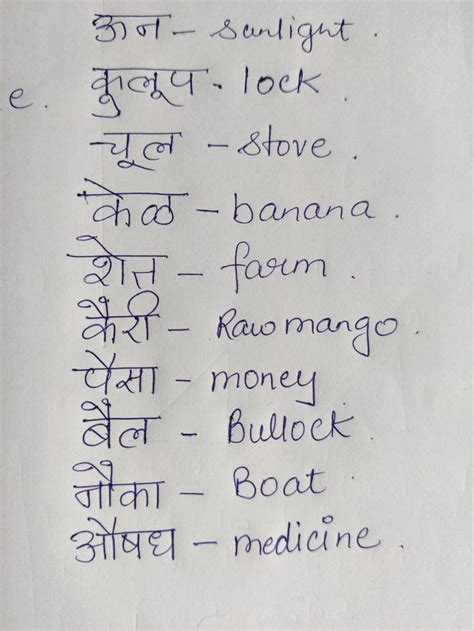 ऊन - sunlight.
e. कुलूप - lock
चूल - stove.
केळ - banana.
शेत - farm.
कैरी - Raw mango.
पैसा - money
बैल - Bullock.
नौका - Boat.
औषध - medicine.